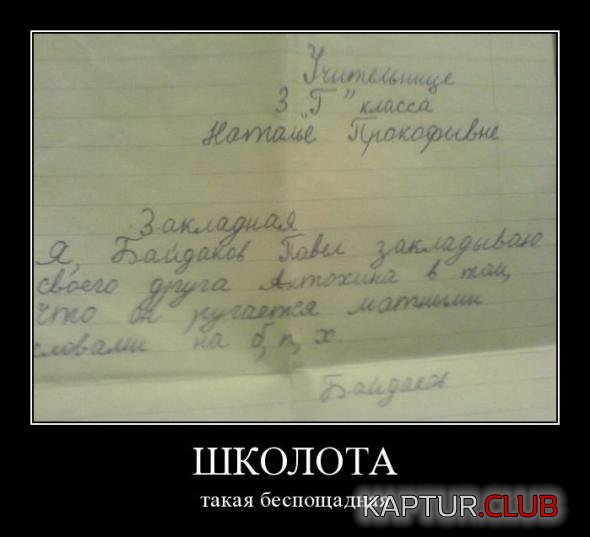 Учительнице
3 "Г" класса
Наталье Прокофьвне
Закладная
Я, Байдаков Павел закладываю
своего друга Антохина в том,
что он ругается матными
словами на б, п, х.
Байдаков
ШКОЛОТА
такая беспощадная
KAPTUR.CLUB